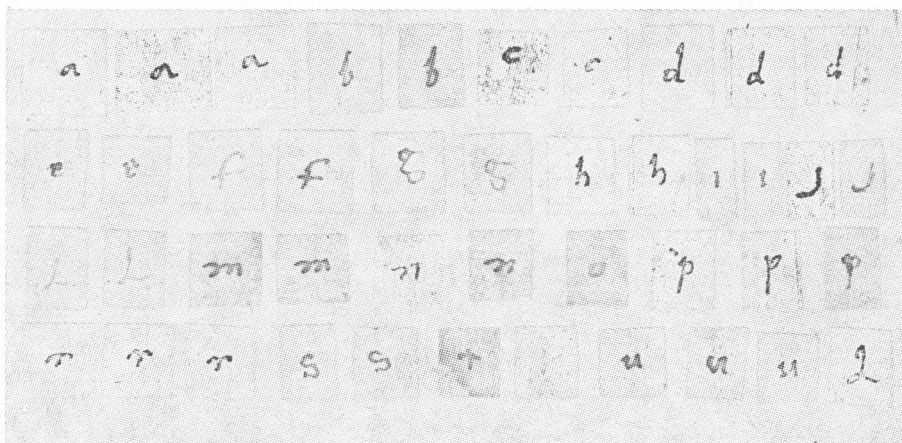 a a a b b c c d d d
e e f f g g h h i i j j
l l m m n n o p p p
r r r s s t u u u